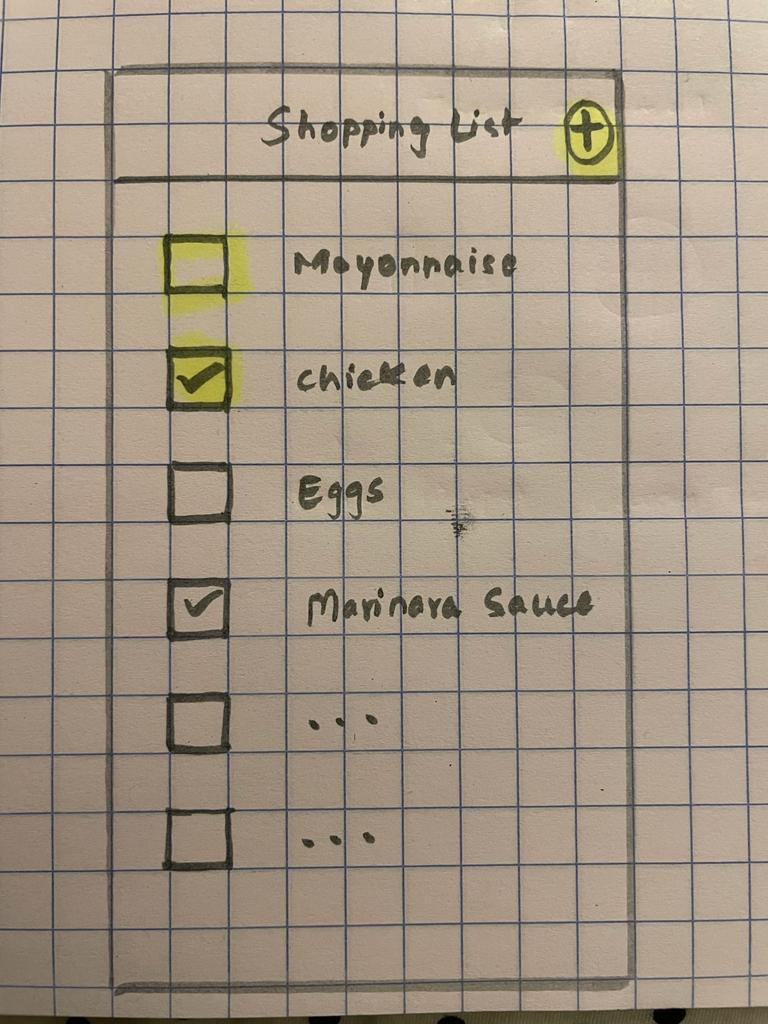 Shopping List +
Mayonnaise
chicken
Eggs
Marinara Sauce
...
...